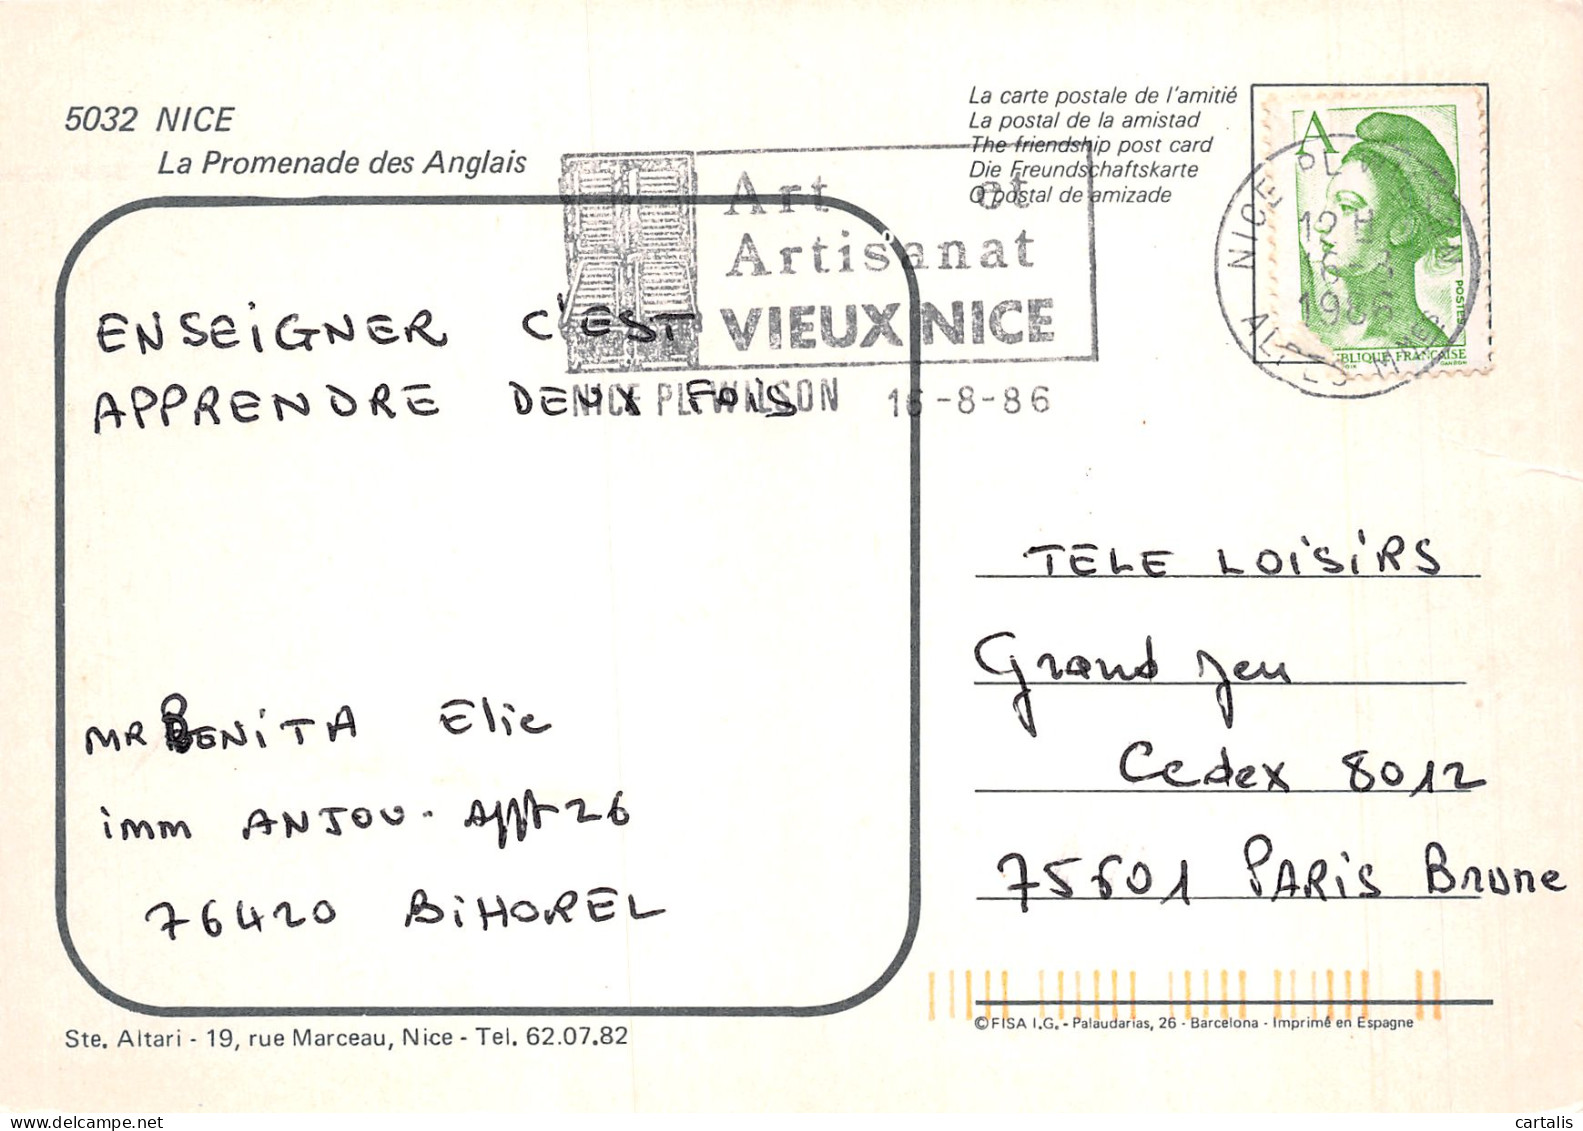 5032 NICE
La Promenade des Anglais
La carte postale de l'amitié
La postal de la amistad
The friendship post card
Die Freundschaftskarte
O postal de amizade
A
POSTES
FRANÇAISE
NICE PL WILSON
1986
ALPES MMES
Art et
Artisanat
VIEUX NICE
NICE PL. WILSON 16-8-86
ENSEIGNER C'EST
APPRENDRE DEUX FOIS
MR BENITA Elie
imm ANJOU. Appt 26
76420 BIHOREL
TELE LOISIRS
Grand Jeu
Cedex 8012
75601 PARIS Brune
Ste. Altari - 19, rue Marceau, Nice - Tel. 62.07.82
© FISA I.G. - Palaudarias, 26 - Barcelona - Imprimé en Espagne
cartalis